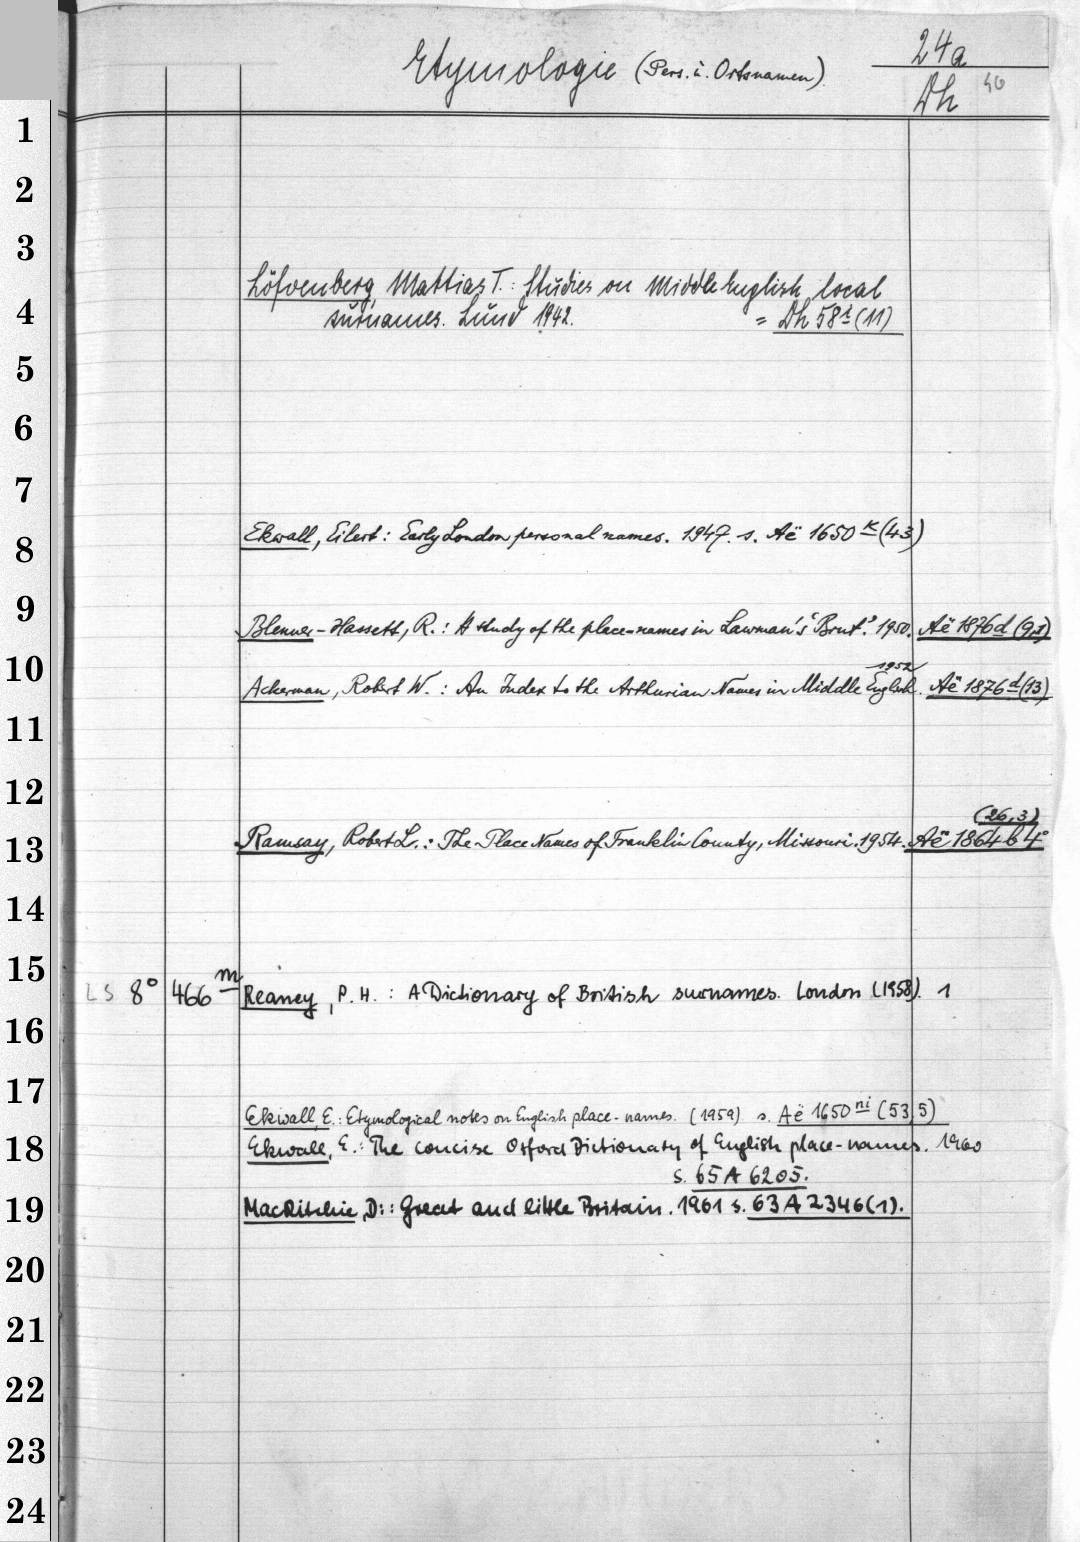 Etymologie (Pers. u. Ortsnamen)
24a
Dh 40
1
2
3
Löfvenberg, Mattias T.: Studies on Middle English local
4
surnames. Lund 1942. = Dh 58 (11)
5
6
7
8
Ekwall, Eilert: Early London personal names. 1947. s. Aë 1650 k (43)
9
Blenner-Hassett, R.: A study of the place-names in Lawman's 'Brut'. 1950. Aë 1876d (9,1)
10
1952
Ackerman, Robert W.: An Index to the Arthurian Names in Middle English. Aë 1876 d (13)
11
12
(26,3)
13
Ramsay, Robert L.: The Place Names of Franklin County, Missouri. 1954. Aë 1864 b 4°
14
15
LS 8° 466 m Reaney, P. H.: A Dictionary of British surnames. London (1958). 1
16
17
Ekwall, E.: Etymological notes on English place-names. (1959) s. Aë 1650 ni (53,5)
18
Ekwall, E.: The concise Oxford Dictionary of English place-names. 1960
s. 65 A 6205.
19
MacRitchie, D.: Great and little Britain. 1961 s. 63 A 2346(1).
20
21
22
23
24